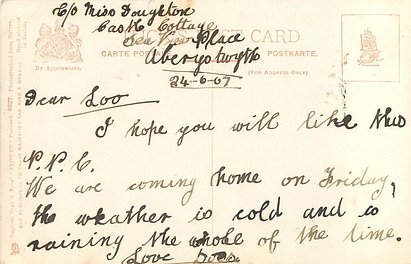 C/O Miss Doughton
Castle Cottage
Sea View Place
Aberystwyth
24-6-07
CARD
CARTE POSTALE
POSTKARTE.
By Appointment.
(FOR ADDRESS ONLY.)
Dear Loo
I hope you will like this
P.P.C.
We are coming home on Friday,
the weather is cold and is
raining the whole of the time.
Love